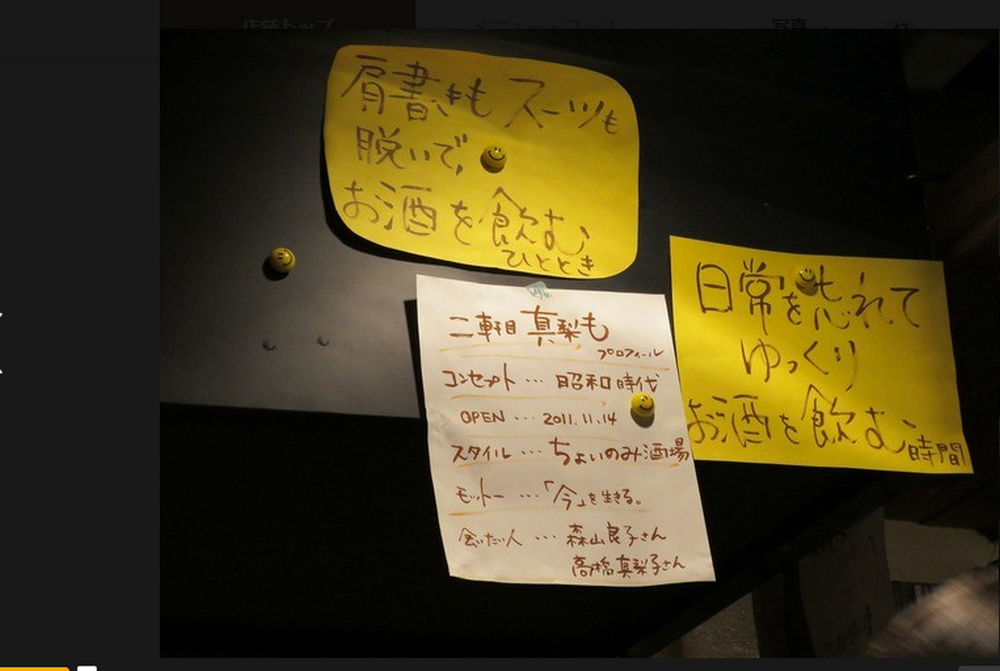 店舗トップ
写真
肩書きも スーツも
脱いで、
お酒を飲む
ひととき
日常を忘れて
ゆっくり
お酒を飲む時間
二軒目 真梨も
プロフィール
コンセプト … 昭和時代
OPEN … 2011.11.14
スタイル … ちょいのみ酒場
モットー …「今」を生きる。
会いたい人 … 森山良子さん
高橋真梨子さん